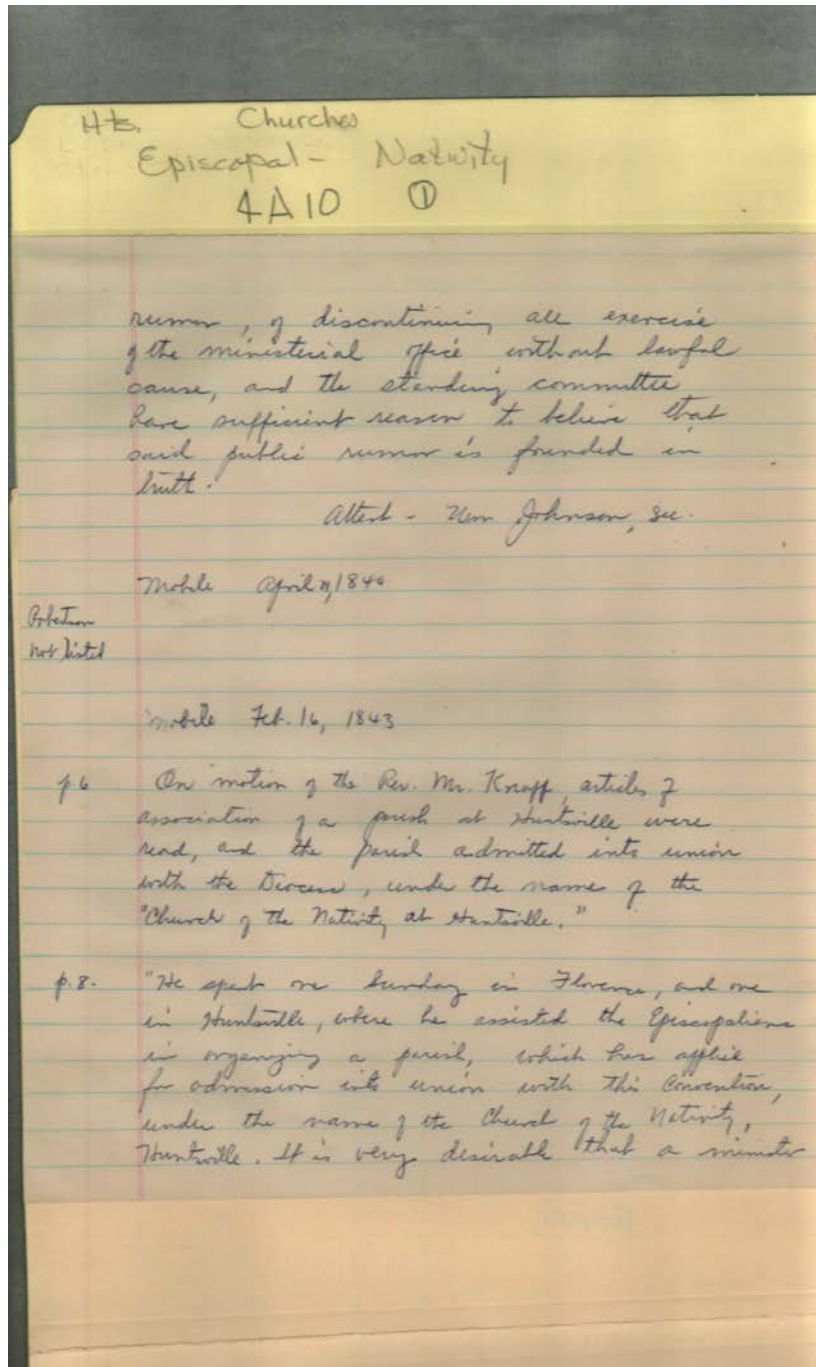 Hts. Churches
Episcopal - Nativity
4A10 ①
rumor, of discontinuing all exercise
of the ministerial office without lawful
cause, and the standing committee
have sufficient reason to believe that
said public rumor is founded in
truth.
Attest - Wm Johnson, Sec.
Mobile April 1840
not listed
Mobile Feb. 16, 1843
p 6 On motion of the Rev. Mr. Knapp, articles of
association of a parish at Huntsville were
read, and the parish admitted into union
with the Diocese, under the name of the
"Church of the Nativity at Huntsville."
p. 8. "He spent one Sunday in Florence, and one
in Huntsville, where he assisted the Episcopalians
in organizing a parish, which has applie
for admission into union with this Convention,
under the name of the Church of the Nativity,
Huntsville. It is very desirable that a minister